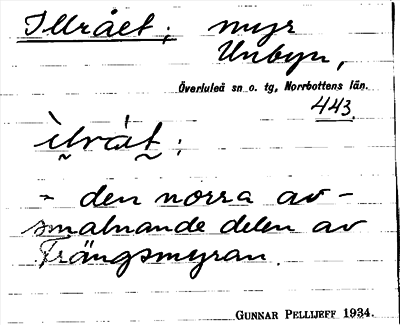 Illrået; myr
Unbyn,
Överluleå sn o. tg, Norrbottens län.
443.
ìlråt;
= den norra av-
smalnande delen av
Trångsmyran.
GUNNAR PELLIJEFF 1934.